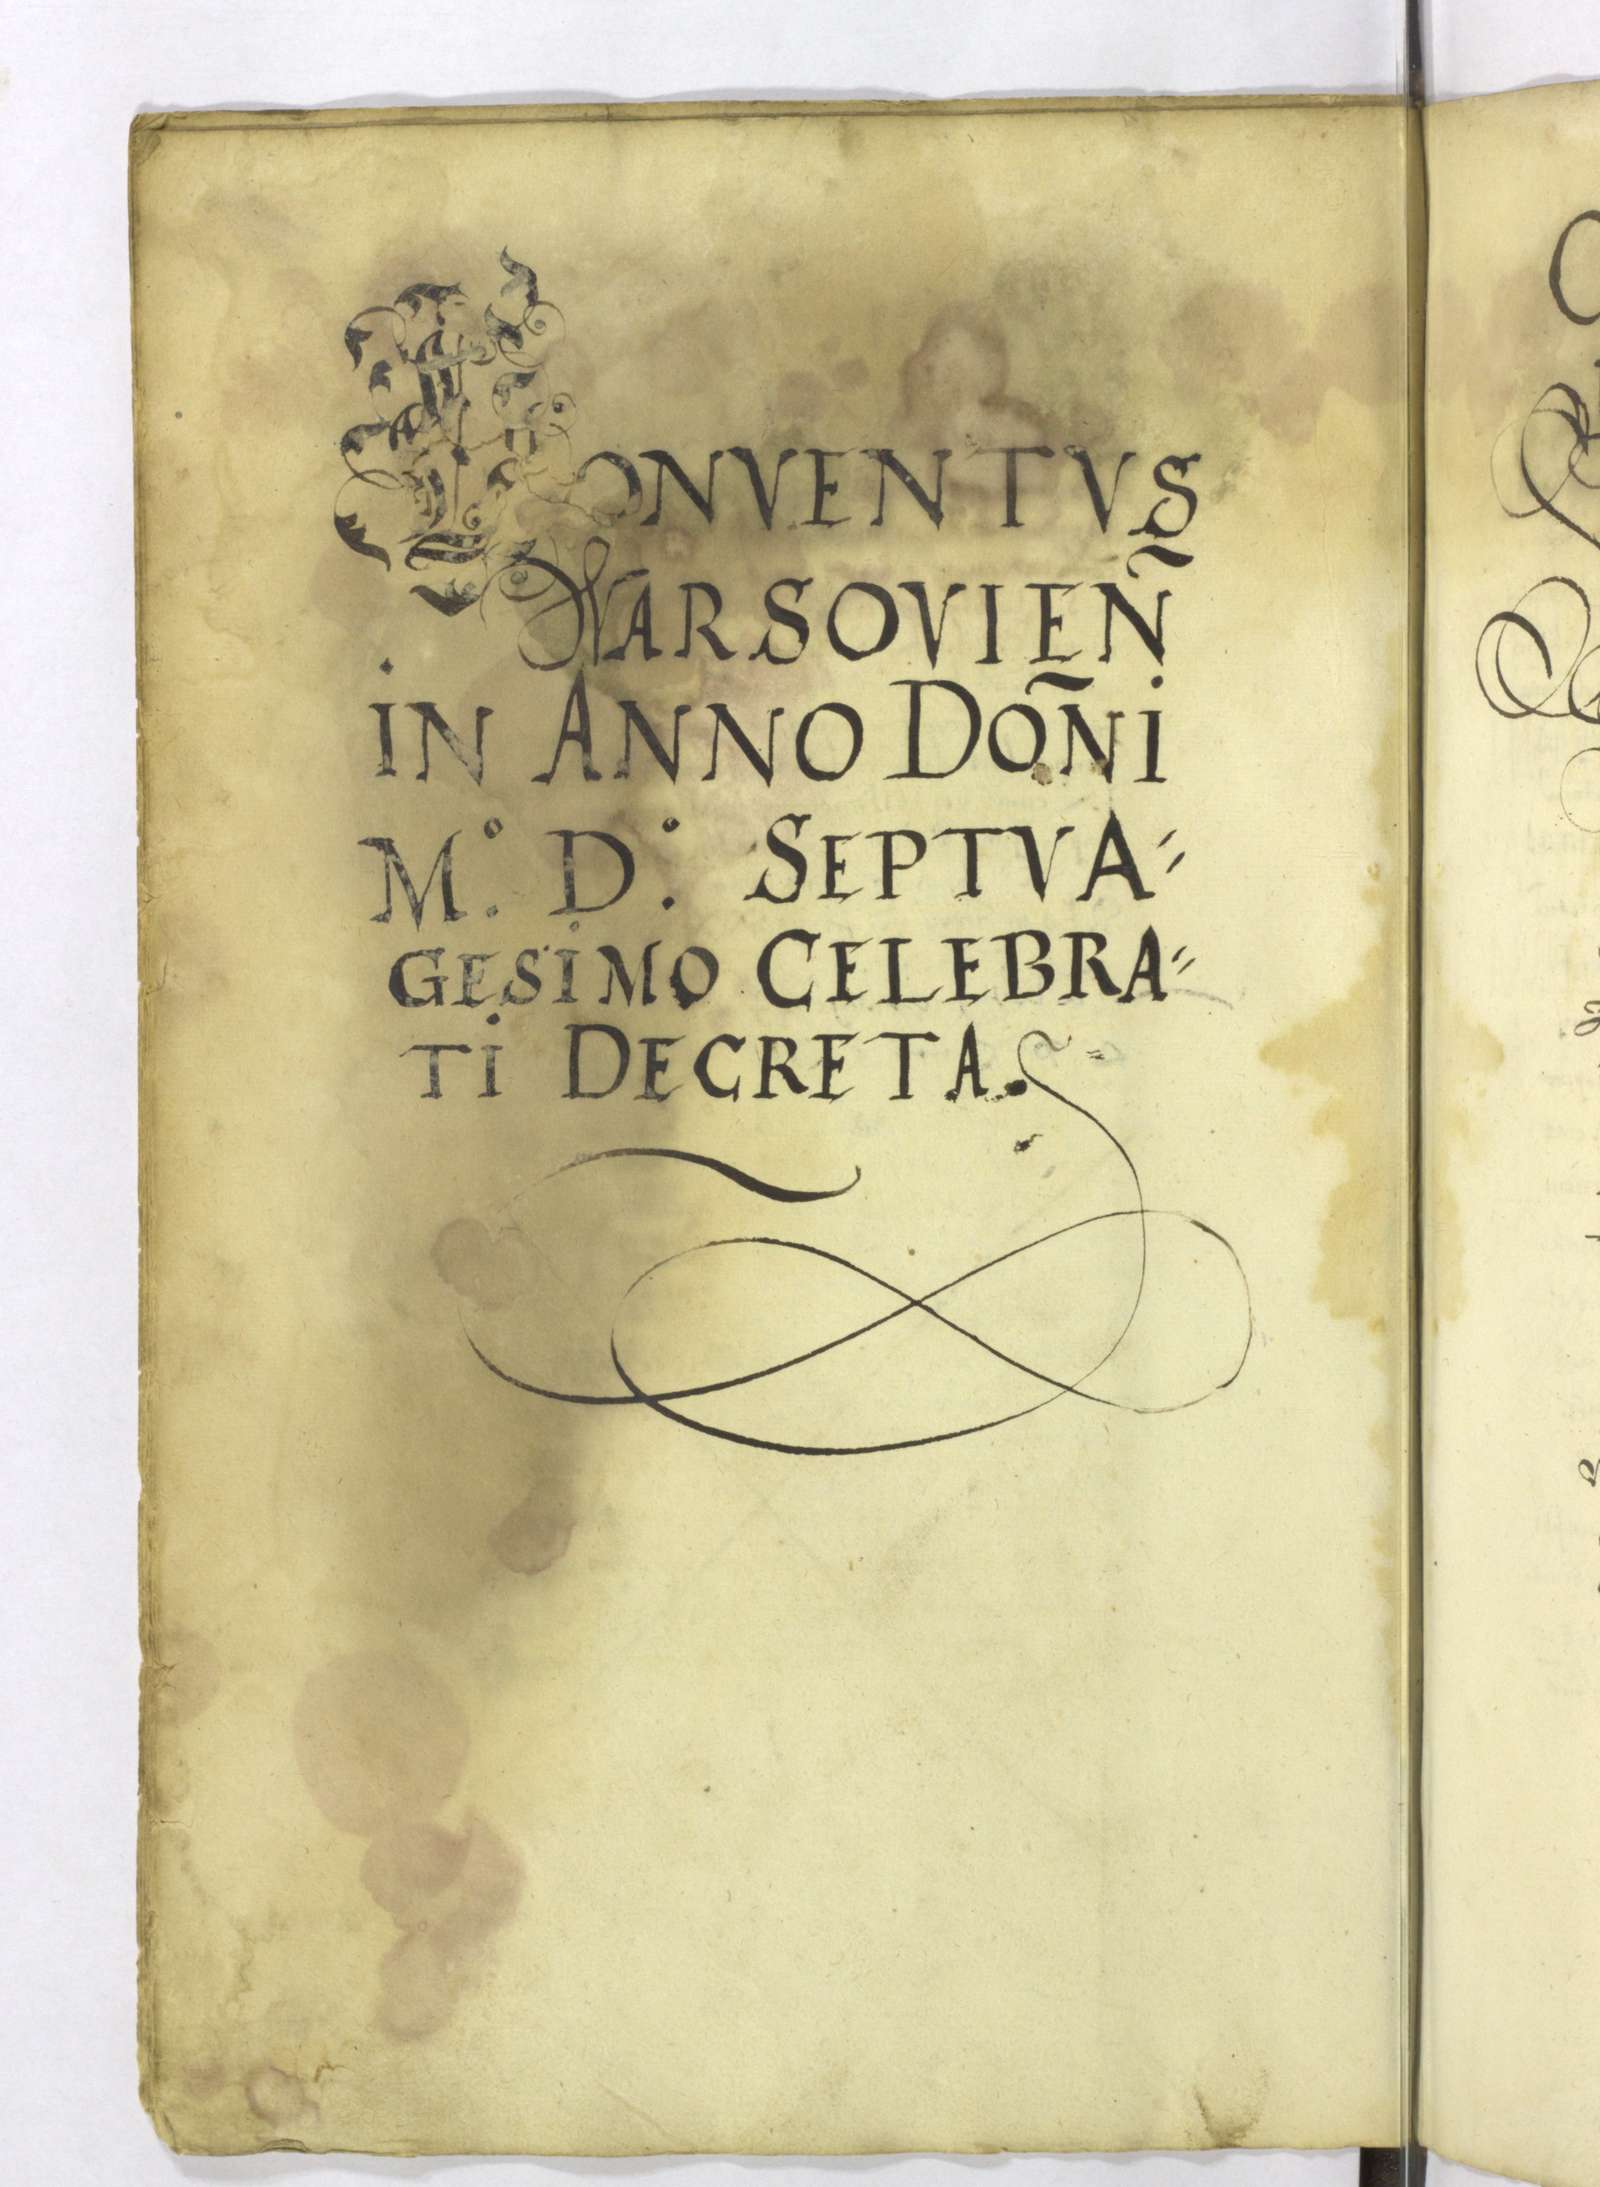 CONVENTVS
WARSOVIEÑ
IN ANNO DOÑI
M.º D.º SEPTVA=
GESIMO CELEBRA=
TI DECRETA.